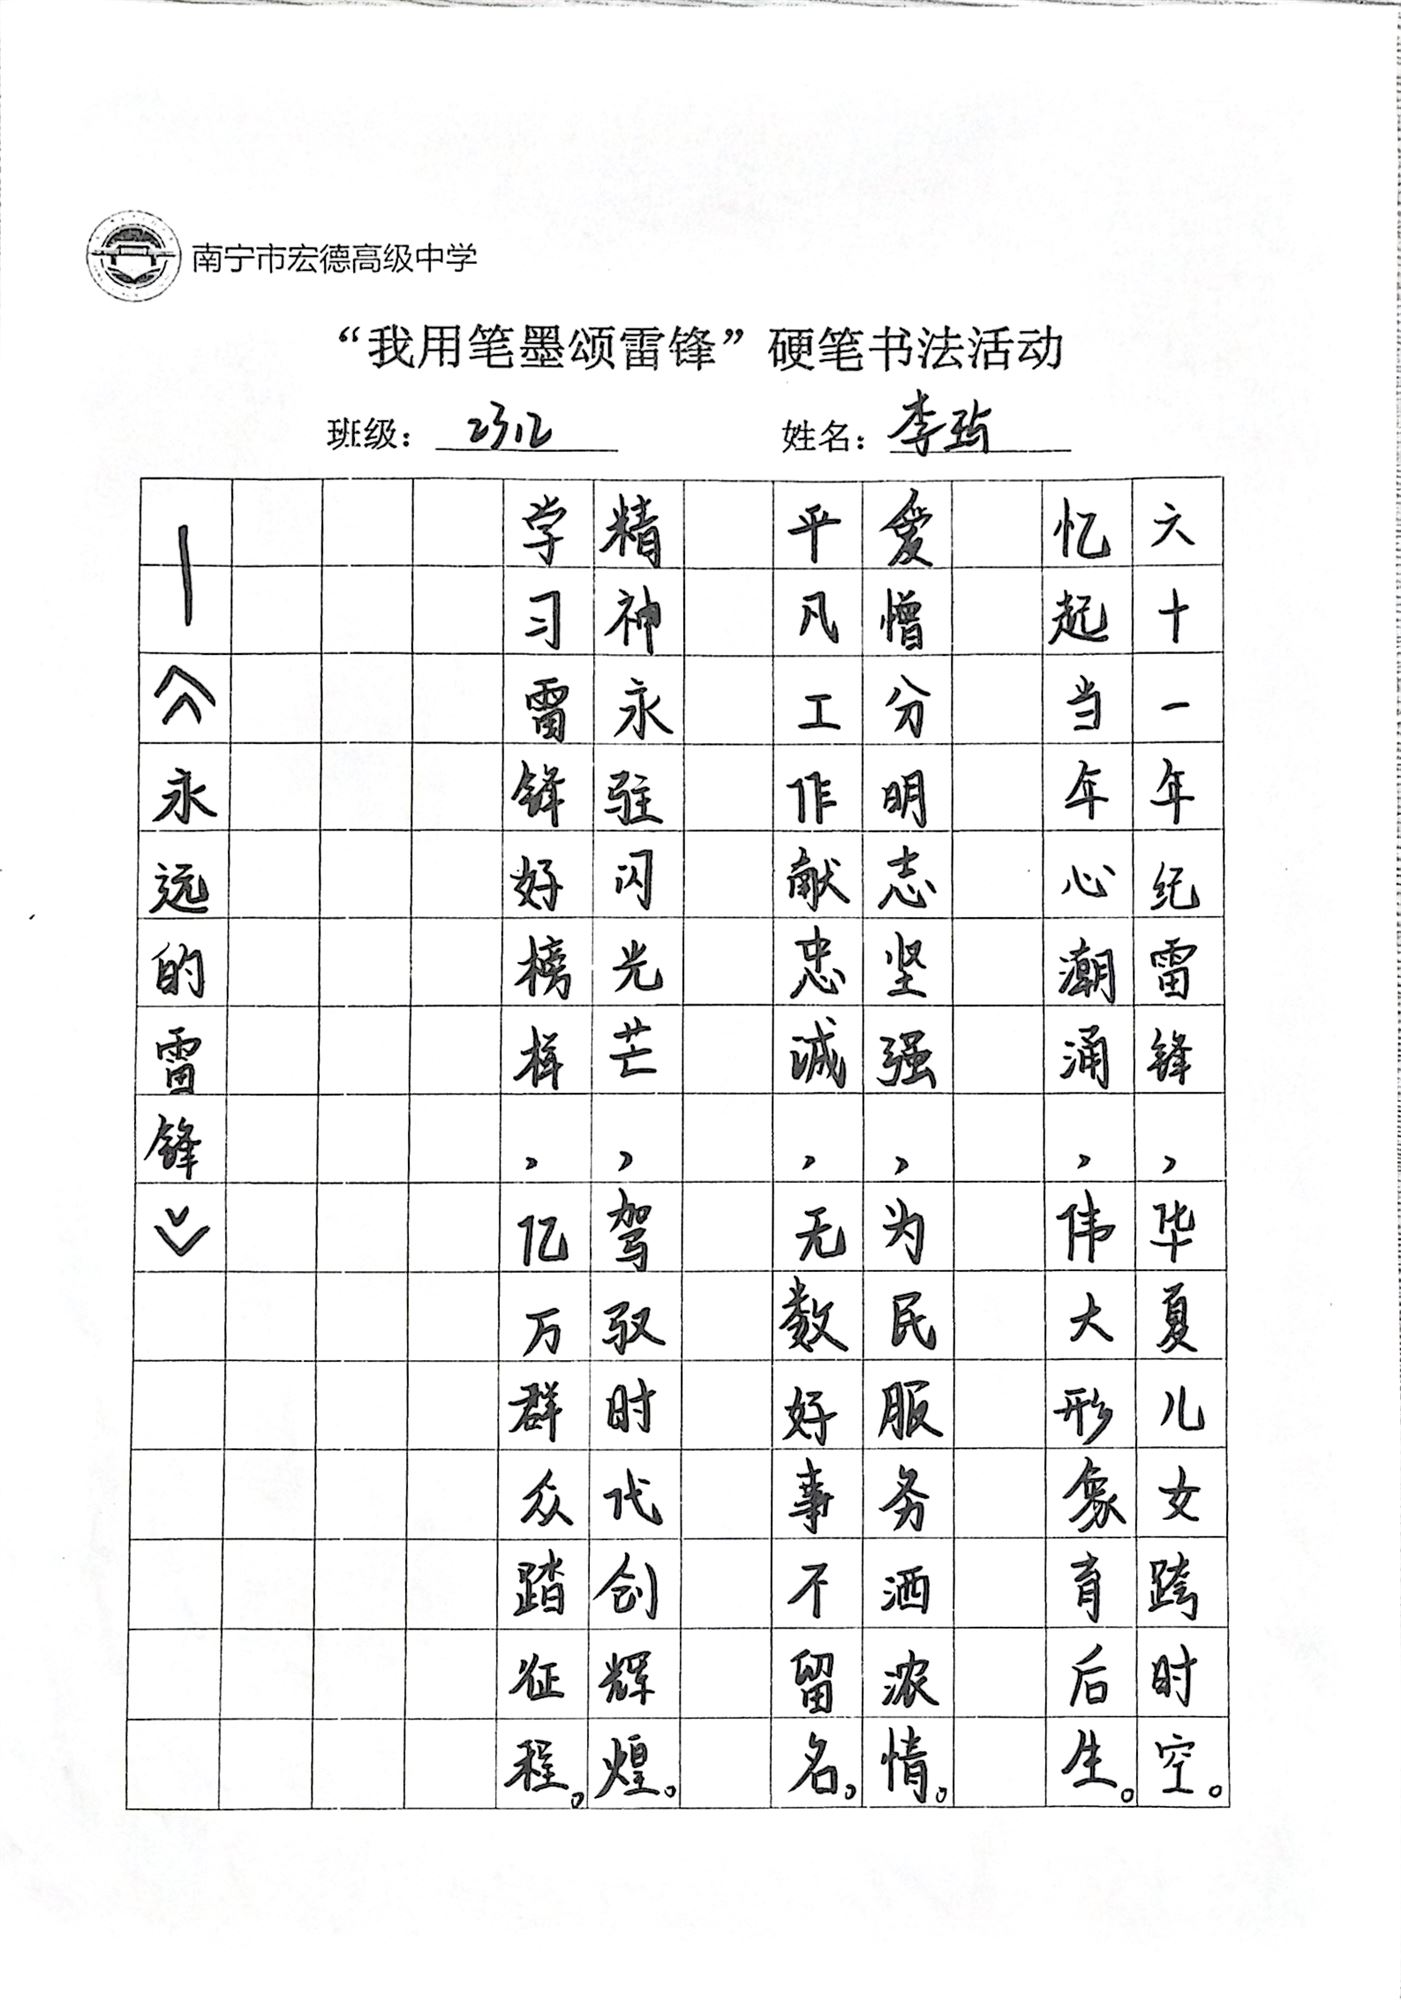 南宁市宏德高级中学
“我用笔墨颂雷锋”硬笔书法活动
班级：2312 姓名：李
六十一年纪雷锋，华夏儿女跨时空。
忆起当年心潮涌，伟大形象育后生。
爱憎分明志坚强，为民服务洒浓情。
平凡工作献忠诚，无数好事不留名。
精神永驻闪光芒，驾驭时代创辉煌。
学习雷锋好榜样，亿万群众踏征程。
—《永远的雷锋》